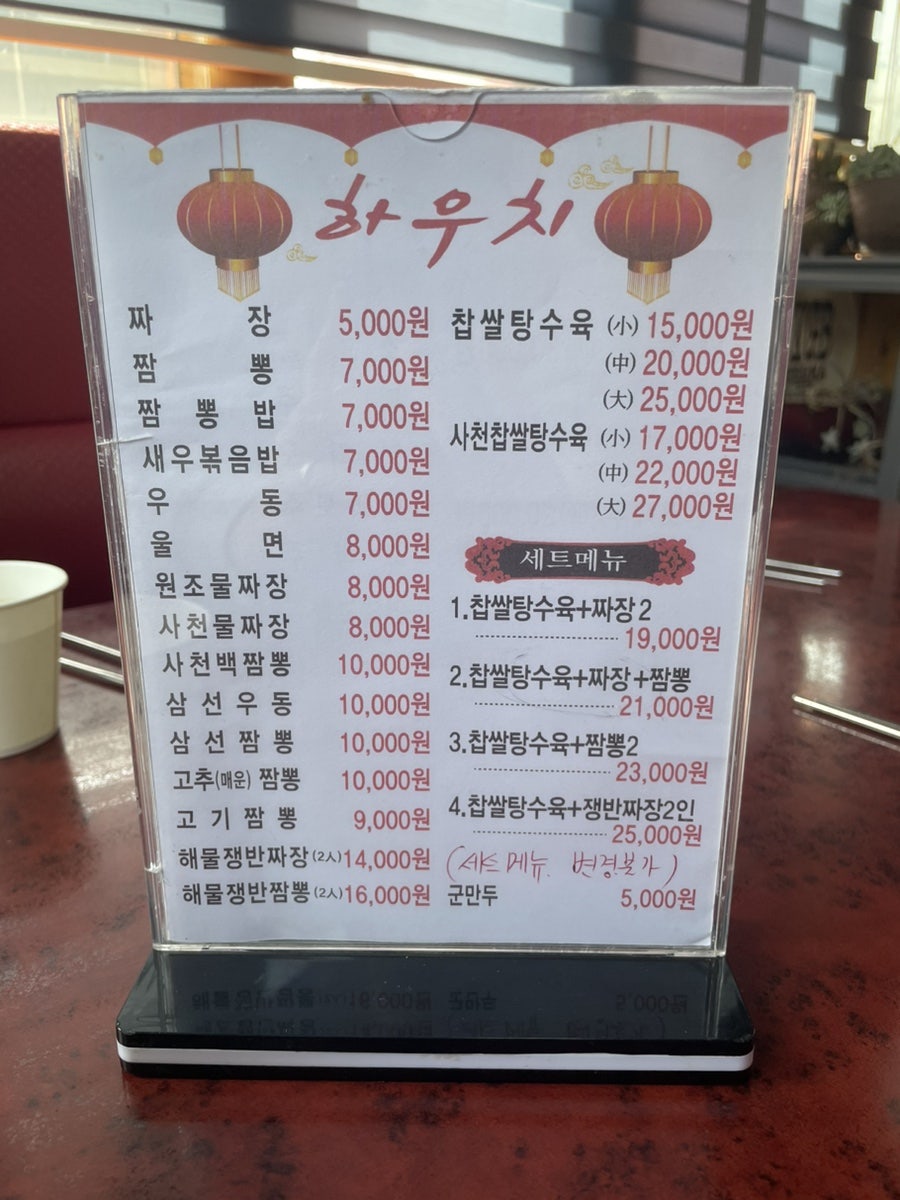 하우치
짜장 5,000원
짬뽕 7,000원
짬뽕밥 7,000원
새우볶음밥 7,000원
우동 7,000원
울면 8,000원
원조물짜장 8,000원
사천물짜장 8,000원
사천백짬뽕 10,000원
삼선우동 10,000원
삼선짬뽕 10,000원
고추(매운)짬뽕 10,000원
고기짬뽕 9,000원
해물쟁반짜장(2人) 14,000원
해물쟁반짬뽕(2人) 16,000원
찹쌀탕수육 (小) 15,000원
(中) 20,000원
(大) 25,000원
사천찹쌀탕수육 (小) 17,000원
(中) 22,000원
(大) 27,000원
세트메뉴
1.찹쌀탕수육+짜장2
19,000원
2.찹쌀탕수육+짜장+짬뽕
21,000원
3.찹쌀탕수육+짬뽕2
23,000원
4.찹쌀탕수육+쟁반짜장2인
25,000원
(세트메뉴. 변경불가)
군만두 5,000원